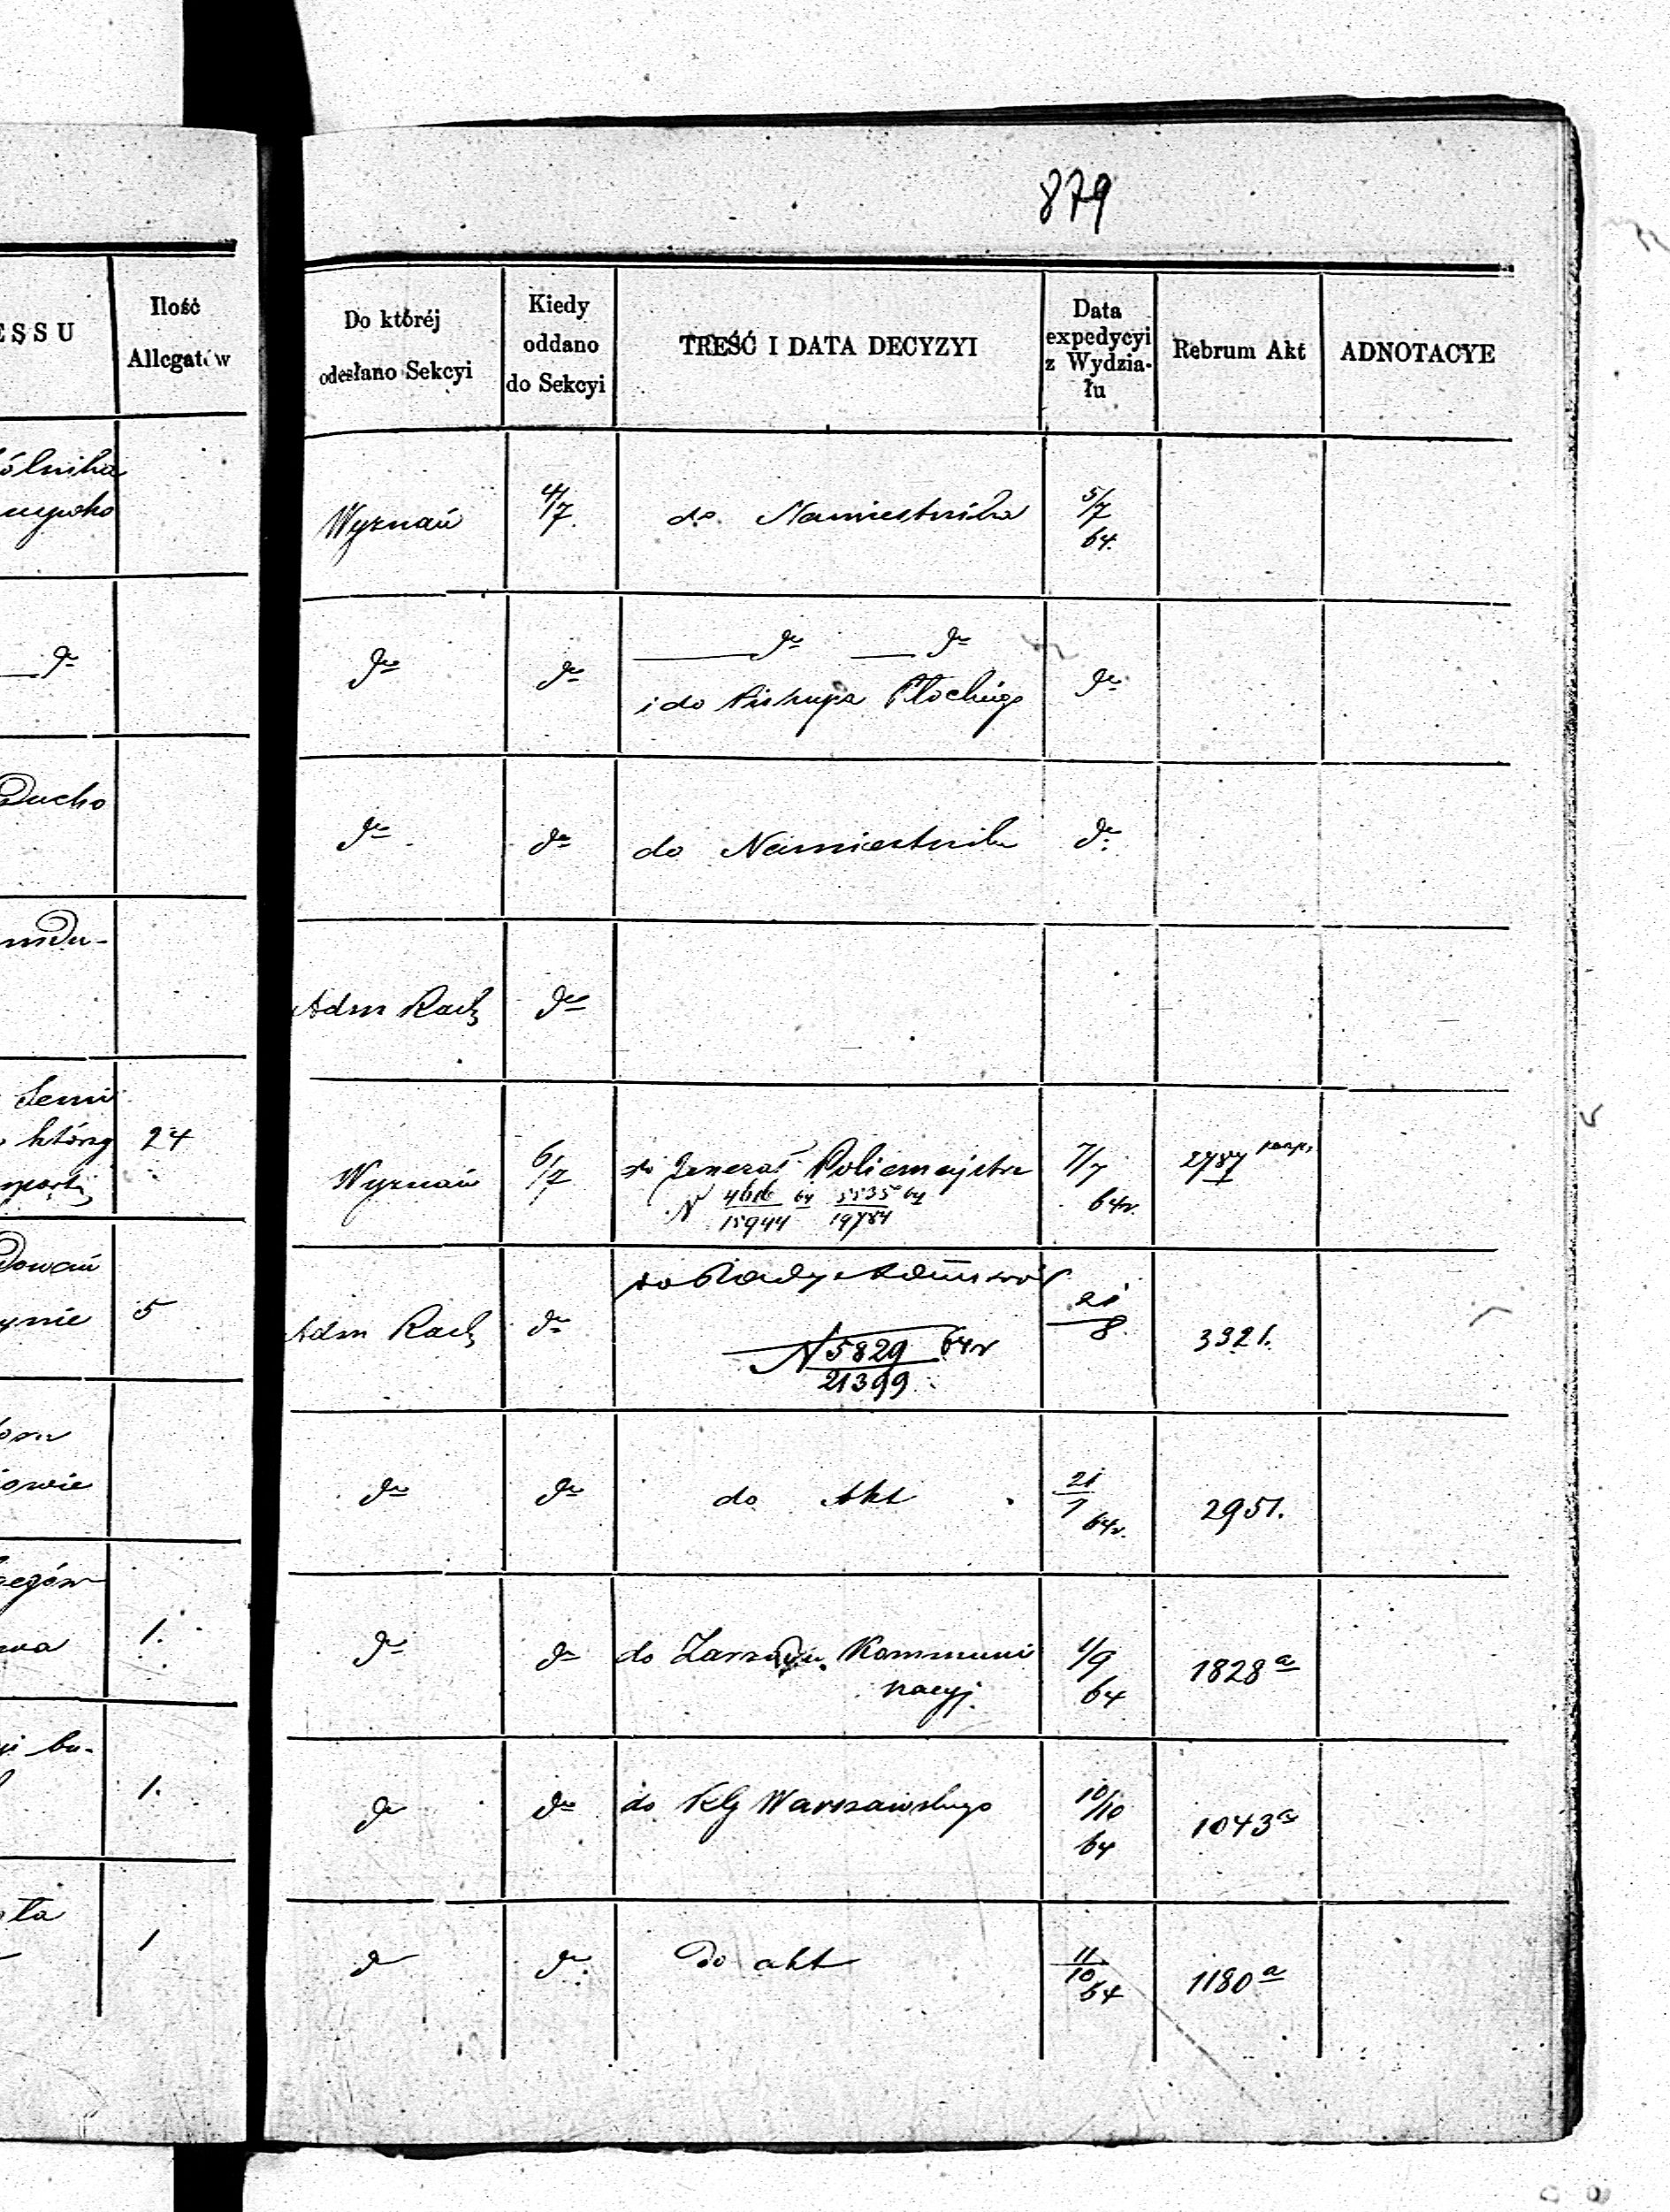 879
ESSU
Ilość
Allegatów
Do któréj
odesłano Sekcyi
Kiedy
oddano
do Sekcyi
TREŚĆ I DATA DECYZYI
Data
expedycyi
z Wydzia-
łu
Rebrum Akt
ADNOTACYE
ólnika
Wyznań
4/7
do Namiestnika
5/7
64.
do
do
do
do do
i do Biskupa Płockiego
do
Ducho
do
do
do Namiestnika
do
Adm Rach
do
którzy
24
Wyznań
6/7
do Jenerał Policmajstra
N 4616 64 5535 64
15944 19784
7/7
64r.
2787
I
dowań
ynie
5
Adm Rach
do
do Rady
N 5829 64r
21399
21
8.
3321.
owie
do
do
do Akt
21
7 64r.
2951.
1.
do
do
do Zarządu Kommuni
kacyj.
1/9
64
1828 a
i bu-
1.
do
do
do Warszawskiego
10/10
64
1043 a
ta
1
do
do
Do akt
11
10 64
1180 a